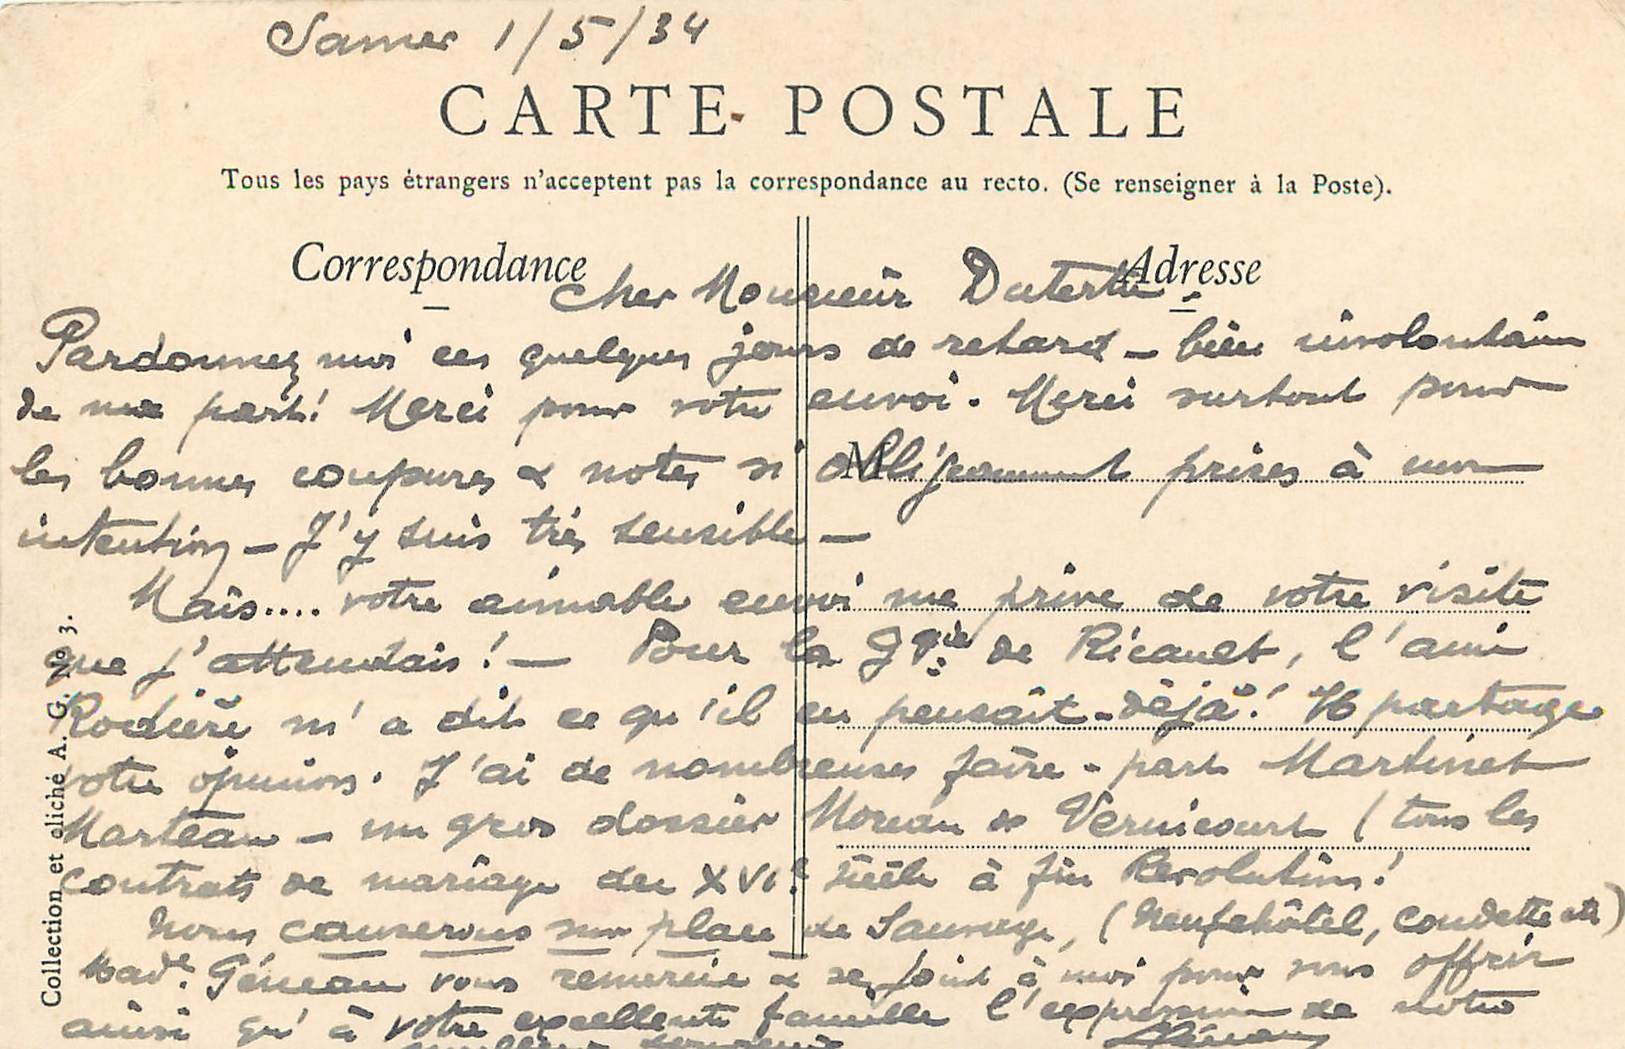 Samer 1/5/34
CARTE POSTALE
Tous les pays étrangers n'acceptent pas la correspondance au recto. (Se renseigner à la Poste).
Correspondance
Adresse
Cher Monsieur Dutertre
Pardonnez moi ces quelques jours de retard – bien involontaire
de ma part! Merci pour votre envoi. Merci surtout pour
les bonnes coupures & notes si obligeamment prises à mon
M
intention – J'y suis très sensible –
Mais.... votre aimable envoi me prive de votre visite
que j'attendais! – Pour la Gie de Ricault, l'ami
Rodière m'a dit ce qu'il en pensait déjà! Il partage
votre opinion. J'ai de nombreuses faire-part Martinet
Marteau – un gros dossier Moreau de Vernicourt (tous les
contrats de mariage du XVIe siècle à fin Revolution!
Nous causerons sur place de Sauvage, (Neufchâtel, Condette etc)
Made. Géneau vous remercie & se joint à moi pour vous offrir
ainsi qu'à votre excellente famille l'expression de notre
meilleur souvenir Géneau
Collection et cliché A. G. No 3.